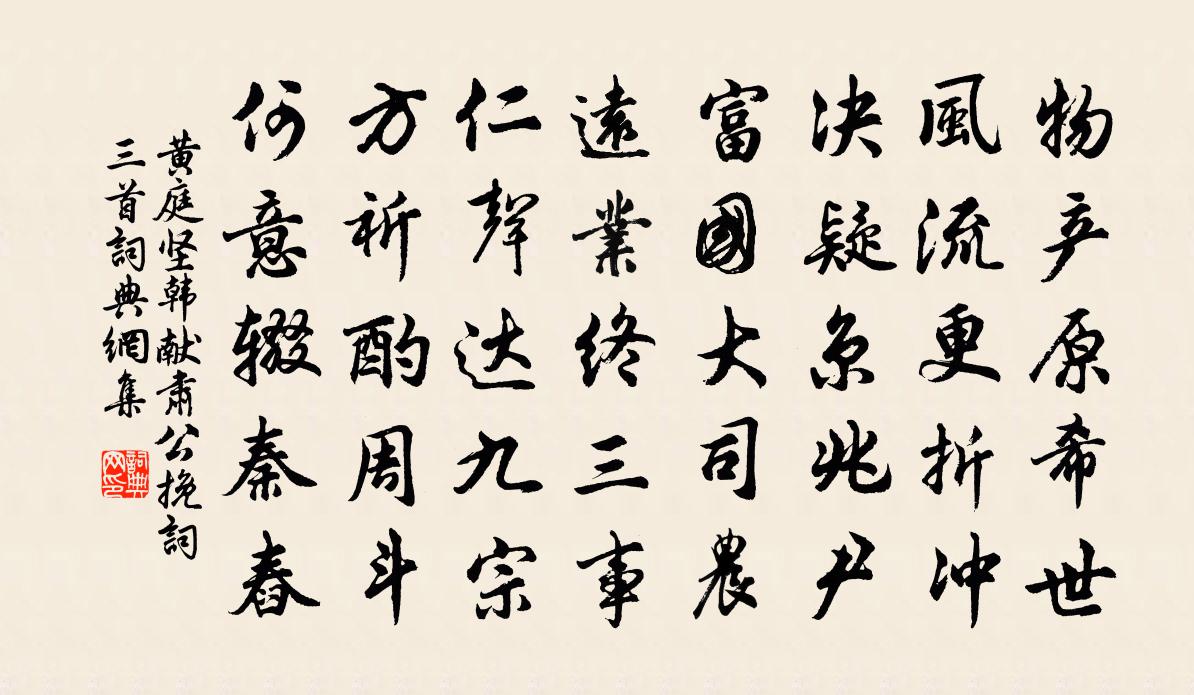 物产原希世
風流更折冲
决疑京兆尹
富國大司農
遠業終三事
仁聲达九宗
方祈酌周斗
何意辍秦舂
黄庭坚韩献肃公挽詞
三首詞典網集
詞典
网印